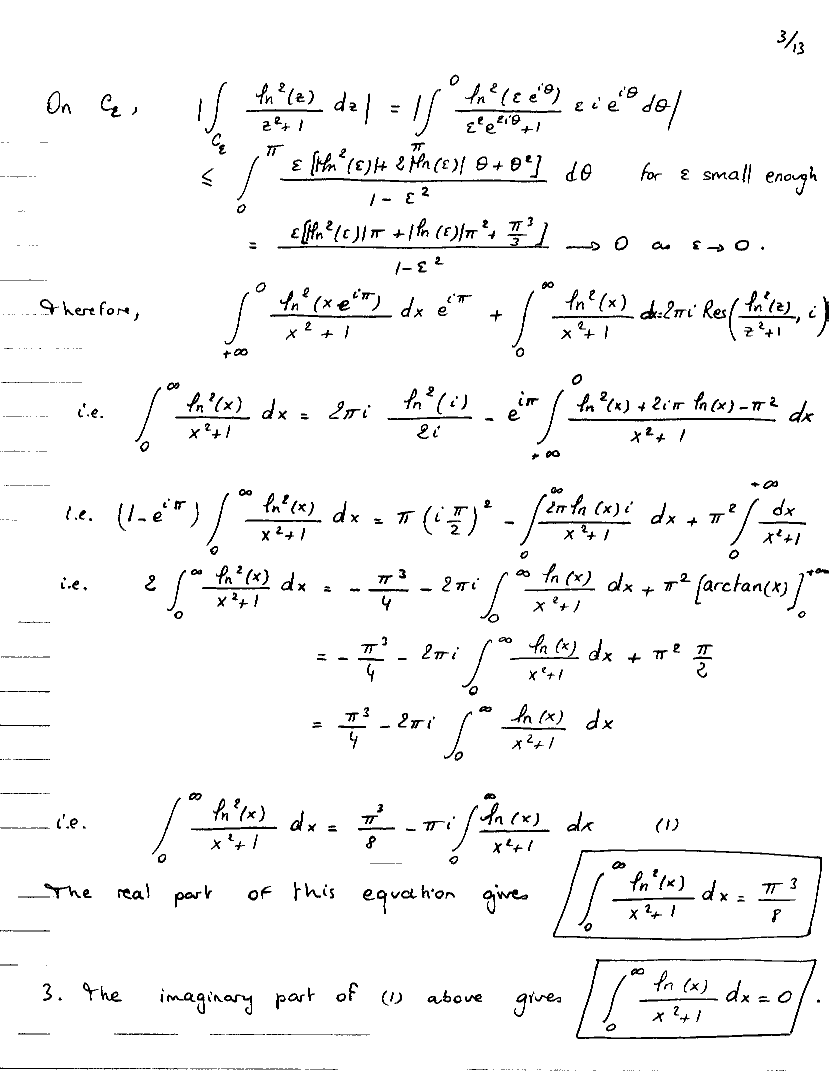 3/13
On C_ε, |∫_{C_ε} ln²(z)/(z²+1) dz| = |∫_π^0 ln²(ε e^{iθ})/(ε² e^{2iθ}+1) ε i e^{iθ} dθ|
≤ ∫_0^π ε[|ln²(ε)|+ 2|ln(ε)| θ + θ²]/(1-ε²) dθ for ε small enough
= ε[|ln²(ε)|π + |ln(ε)|π² + π³/3]/(1-ε²) → 0 as ε → 0.
Therefore, ∫_{+∞}^0 ln²(x e^{iπ})/(x²+1) dx e^{iπ} + ∫_0^∞ ln²(x)/(x²+1) dx = 2πi Res(ln²(z)/(z²+1), i)
i.e. ∫_0^∞ ln²(x)/(x²+1) dx = 2πi ln²(i)/(2i) - e^{iπ} ∫_{+∞}^0 (ln²(x) + 2iπ ln(x) - π²)/(x²+1) dx
i.e. (1-e^{iπ}) ∫_0^∞ ln²(x)/(x²+1) dx = π (i π/2)² - ∫_0^∞ 2π ln(x) i/(x²+1) dx + π² ∫_0^{+∞} dx/(x²+1)
i.e. 2 ∫_0^∞ ln²(x)/(x²+1) dx = -π³/4 - 2πi ∫_0^∞ ln(x)/(x²+1) dx + π² [arctan(x)]_0^{+∞}
= -π³/4 - 2πi ∫_0^∞ ln(x)/(x²+1) dx + π² π/2
= π³/4 - 2πi ∫_0^∞ ln(x)/(x²+1) dx
i.e. ∫_0^∞ ln²(x)/(x²+1) dx = π³/8 - πi ∫_0^∞ ln(x)/(x²+1) dx (1)
The real part of this equation gives ∫_0^∞ ln²(x)/(x²+1) dx = π³/8
3. The imaginary part of (1) above gives ∫_0^∞ ln(x)/(x²+1) dx = 0.